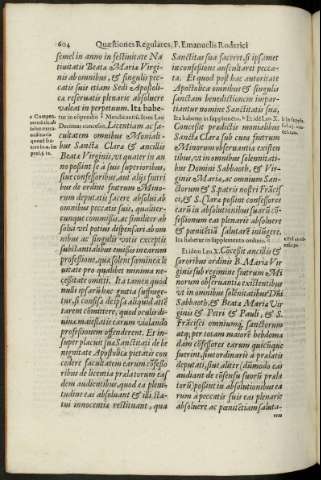 604 Quæstiones Regulares, F. Emanuelis Roderici
semel in anno in festiuitate Na
tiuitatis Beatæ Mariæ Virgi-
nis ab omnibus, & singulis pec-
catis suis etiam Sedi Apostoli-
ca reseruatis plenariè absoluere
valeat in perpetuum. Ita habe-
tur in
Decimus concessit. Licentiam ac fa-
cultatem omnibus Moniali-
bus Sanctæ Claræ & ancillis
Beatæ Virginis, vt quater in an
no possint se à suis superioribus,
siue confessoribus, aut alijs fratri
bus de ordine fratrum Mino-
rum deputatis facere absolui ab
omnibus peccatis suis, qualiter-
cunque commissis, ac similiter ab
solui vel potius dispensari ab om
nibus ac singulis votis exceptis
substantialibus emissis in eorum
professione, quæ solent fæmineæ le
uitate pro qualibet minima ne-
cessitate emitti. Ea tamen quod
nulli ipsarum hæc gratia suffrage-
tur, si confisa de ipsa aliquid
tarent committere, quod oculos di-
uinæ maiestatis earum violando
professionem offenderent. Et in-
super placuit suæ Sanctitati de be
nignitate Apostolica pietatis con
cedere facultatem earum confesso
ribus de licentia prælatorum eas
dem audientibus, quod ea pleni-
tudine eas absoluant & illi sta-
tui innocentiæ restituant, qua
Sanctitas sua faceret, si ipsamet
in confessione auscultaret pecca-
ta. Et quod post hac autoritate
Apostolica omnibus & singulis
sanctam benedictionem impar-
tiantur nomine suæ Sanctitatis suæ.
Ita habetur in supplemento. Et idē Leo X.
Concessit prædictis monialibus
Sanctæ Claræ sub cura fratrum
Minorum obseruantiæ existen
tibus, vt in omnibus solemnitati-
bus Domini Sabbaoth, & Vir-
ginis Mariæ, ac omnium San-
ctorum & S. patris nostri Frācis
ci, & S. Claræ possint confessores
earū in absolutionibus suarū cō-
fessionum eas plenariè absoluere
& pœnitētiā salutarē iniūgere.
Ita habetur in supplemento ordinis.
Et idem Leo X. Cōcessit ancillis &
sororibus ordinis B. Mariæ Vir
ginis sub regimine fratrum Mi
norum obseruantiæ existentibus
vt in omnibus solēnitatibus Dñi
Sabbaoth, & Beatæ Mariæ Vir
ginis & Petri & Pauli, & S.
Frācisci omniumq; sanctorum
atq; per totam maiorē hebdoma
dam cōfessores earum quicūque
fuerint, siue ordinarij à prælatis
deputati, siue aliter, dūmodo eas
audiant de cōsensu suorū præla
torū, possint in absolutionibus ea
rum à peccatis suis eas plenariè
absoluere ac pœnitētiam saluta-